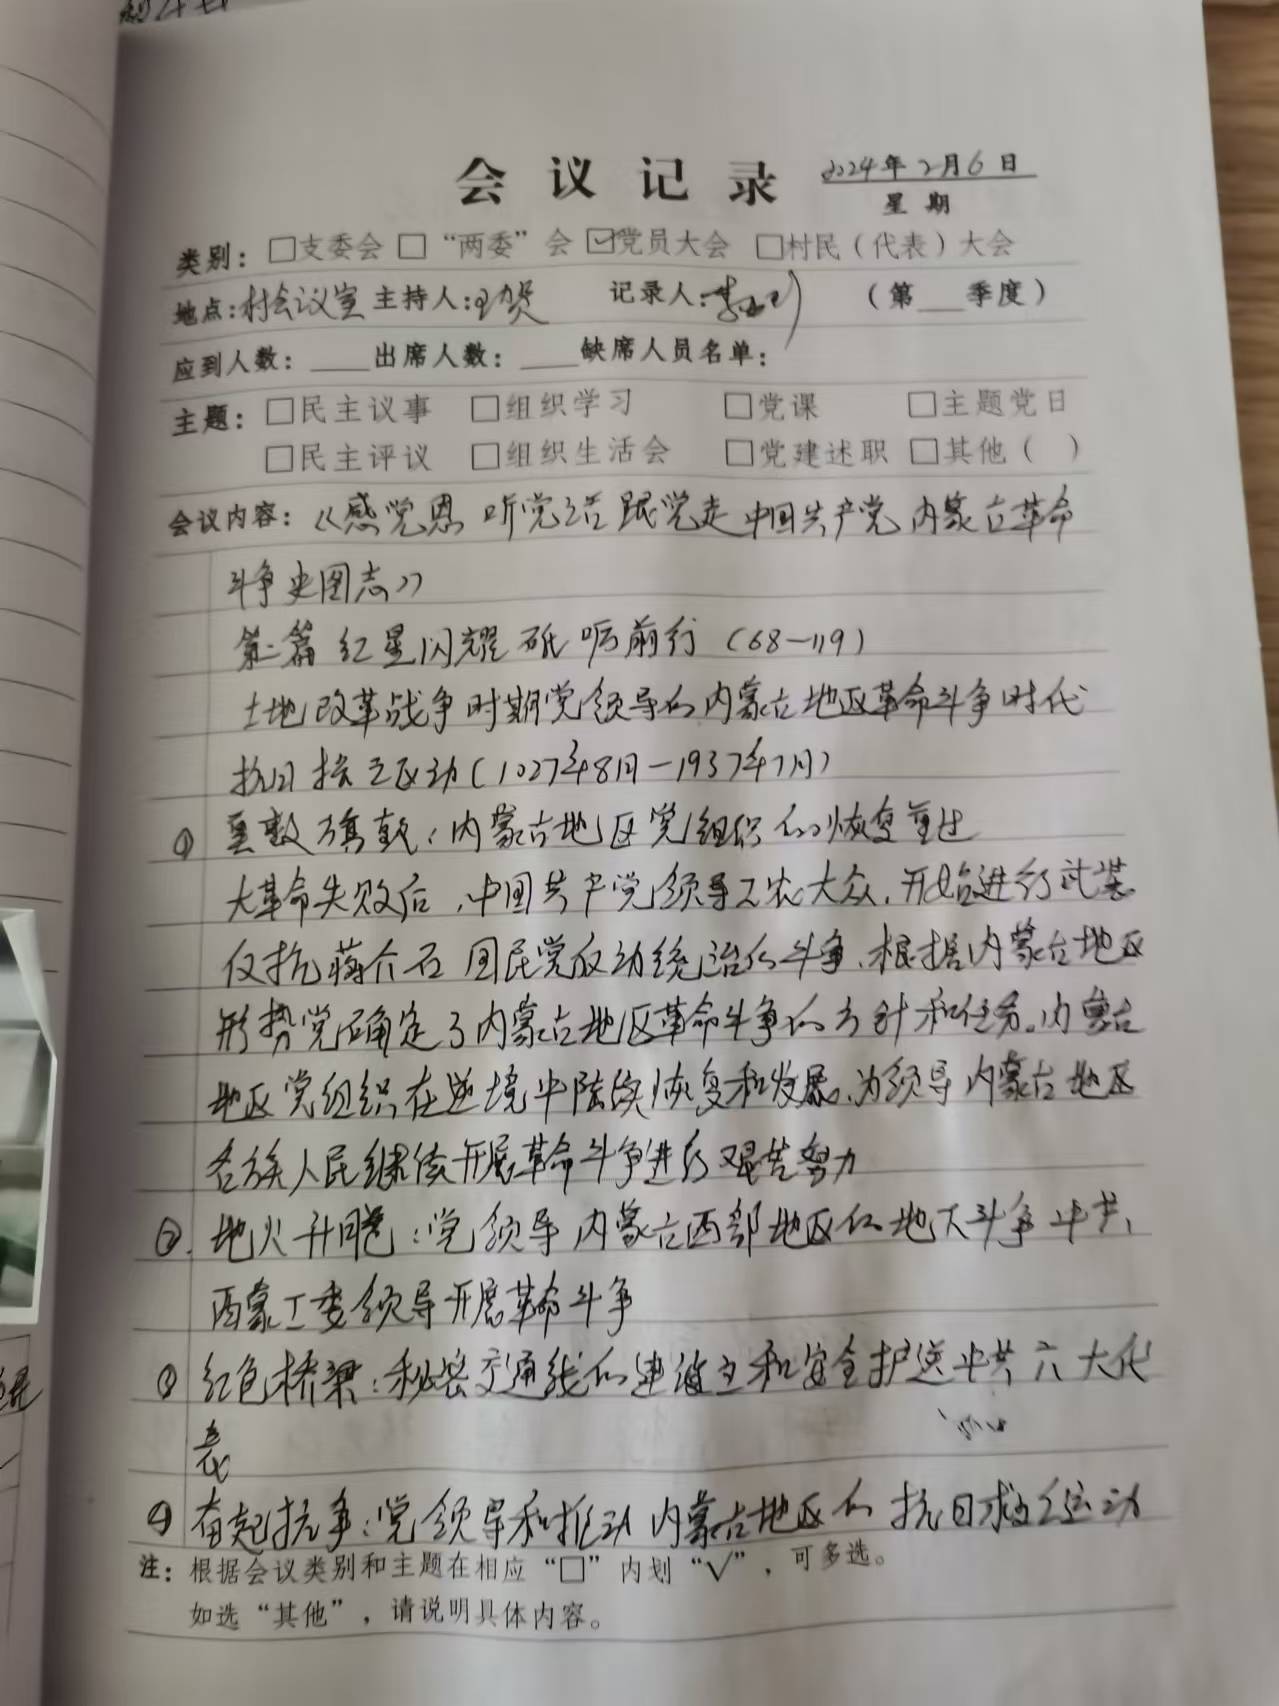 会议记录 2024年2月6日
星期
类别：□支委会 □“两委”会 ☑党员大会 □村民（代表）大会
地点:村会议室 主持人:王贺 记录人: （第__季度）
应到人数：___出席人数：___缺席人员名单：
主题：□民主议事 □组织学习 □党课 □主题党日
□民主评议 □组织生活会 □党建述职 □其他（ ）
会议内容：《感党恩 听党话 跟党走 中国共产党内蒙古革命
斗争史图志》
第二篇 红星闪耀 砥砺前行（68—119）
土地改革战争时期党领导的内蒙古地区革命斗争时代
抗日 运动（1927年8月—1937年7月）
① 重整旗鼓：内蒙古地区党组织的恢复重建
大革命失败后，中国共产党领导工农大众，开始进行武装
反抗蒋介石国民党反动统治的斗争，根据内蒙古地区
形势党确定了内蒙古地区革命斗争的方针和任务。内蒙古
地区党组织在逆境中陆续恢复和发展，为领导内蒙古地区
各族人民继续开展革命斗争进行艰苦努力
② 地火升腾：党领导内蒙古西部地区的地下斗争 中共
西蒙工委领导开展革命斗争
③ 红色桥梁：秘密交通线的建立和安全护送中共六大代
表
④ 奋起抗争：党领导和推动内蒙古地区的抗日救亡运动
注：根据会议类别和主题在相应“□”内划“√”，可多选。
如选“其他”，请说明具体内容。